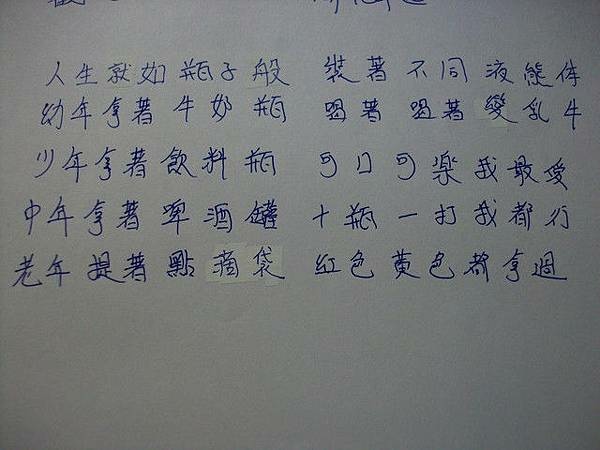 人生就如瓶子般 裝著不同液態体
幼年拿著牛奶瓶 喝著喝著變乳牛
少年拿著飲料瓶 可口可樂我最愛
中年拿著啤酒罐 十瓶一打我都行
老年提著點滴袋 紅色黃色都拿過